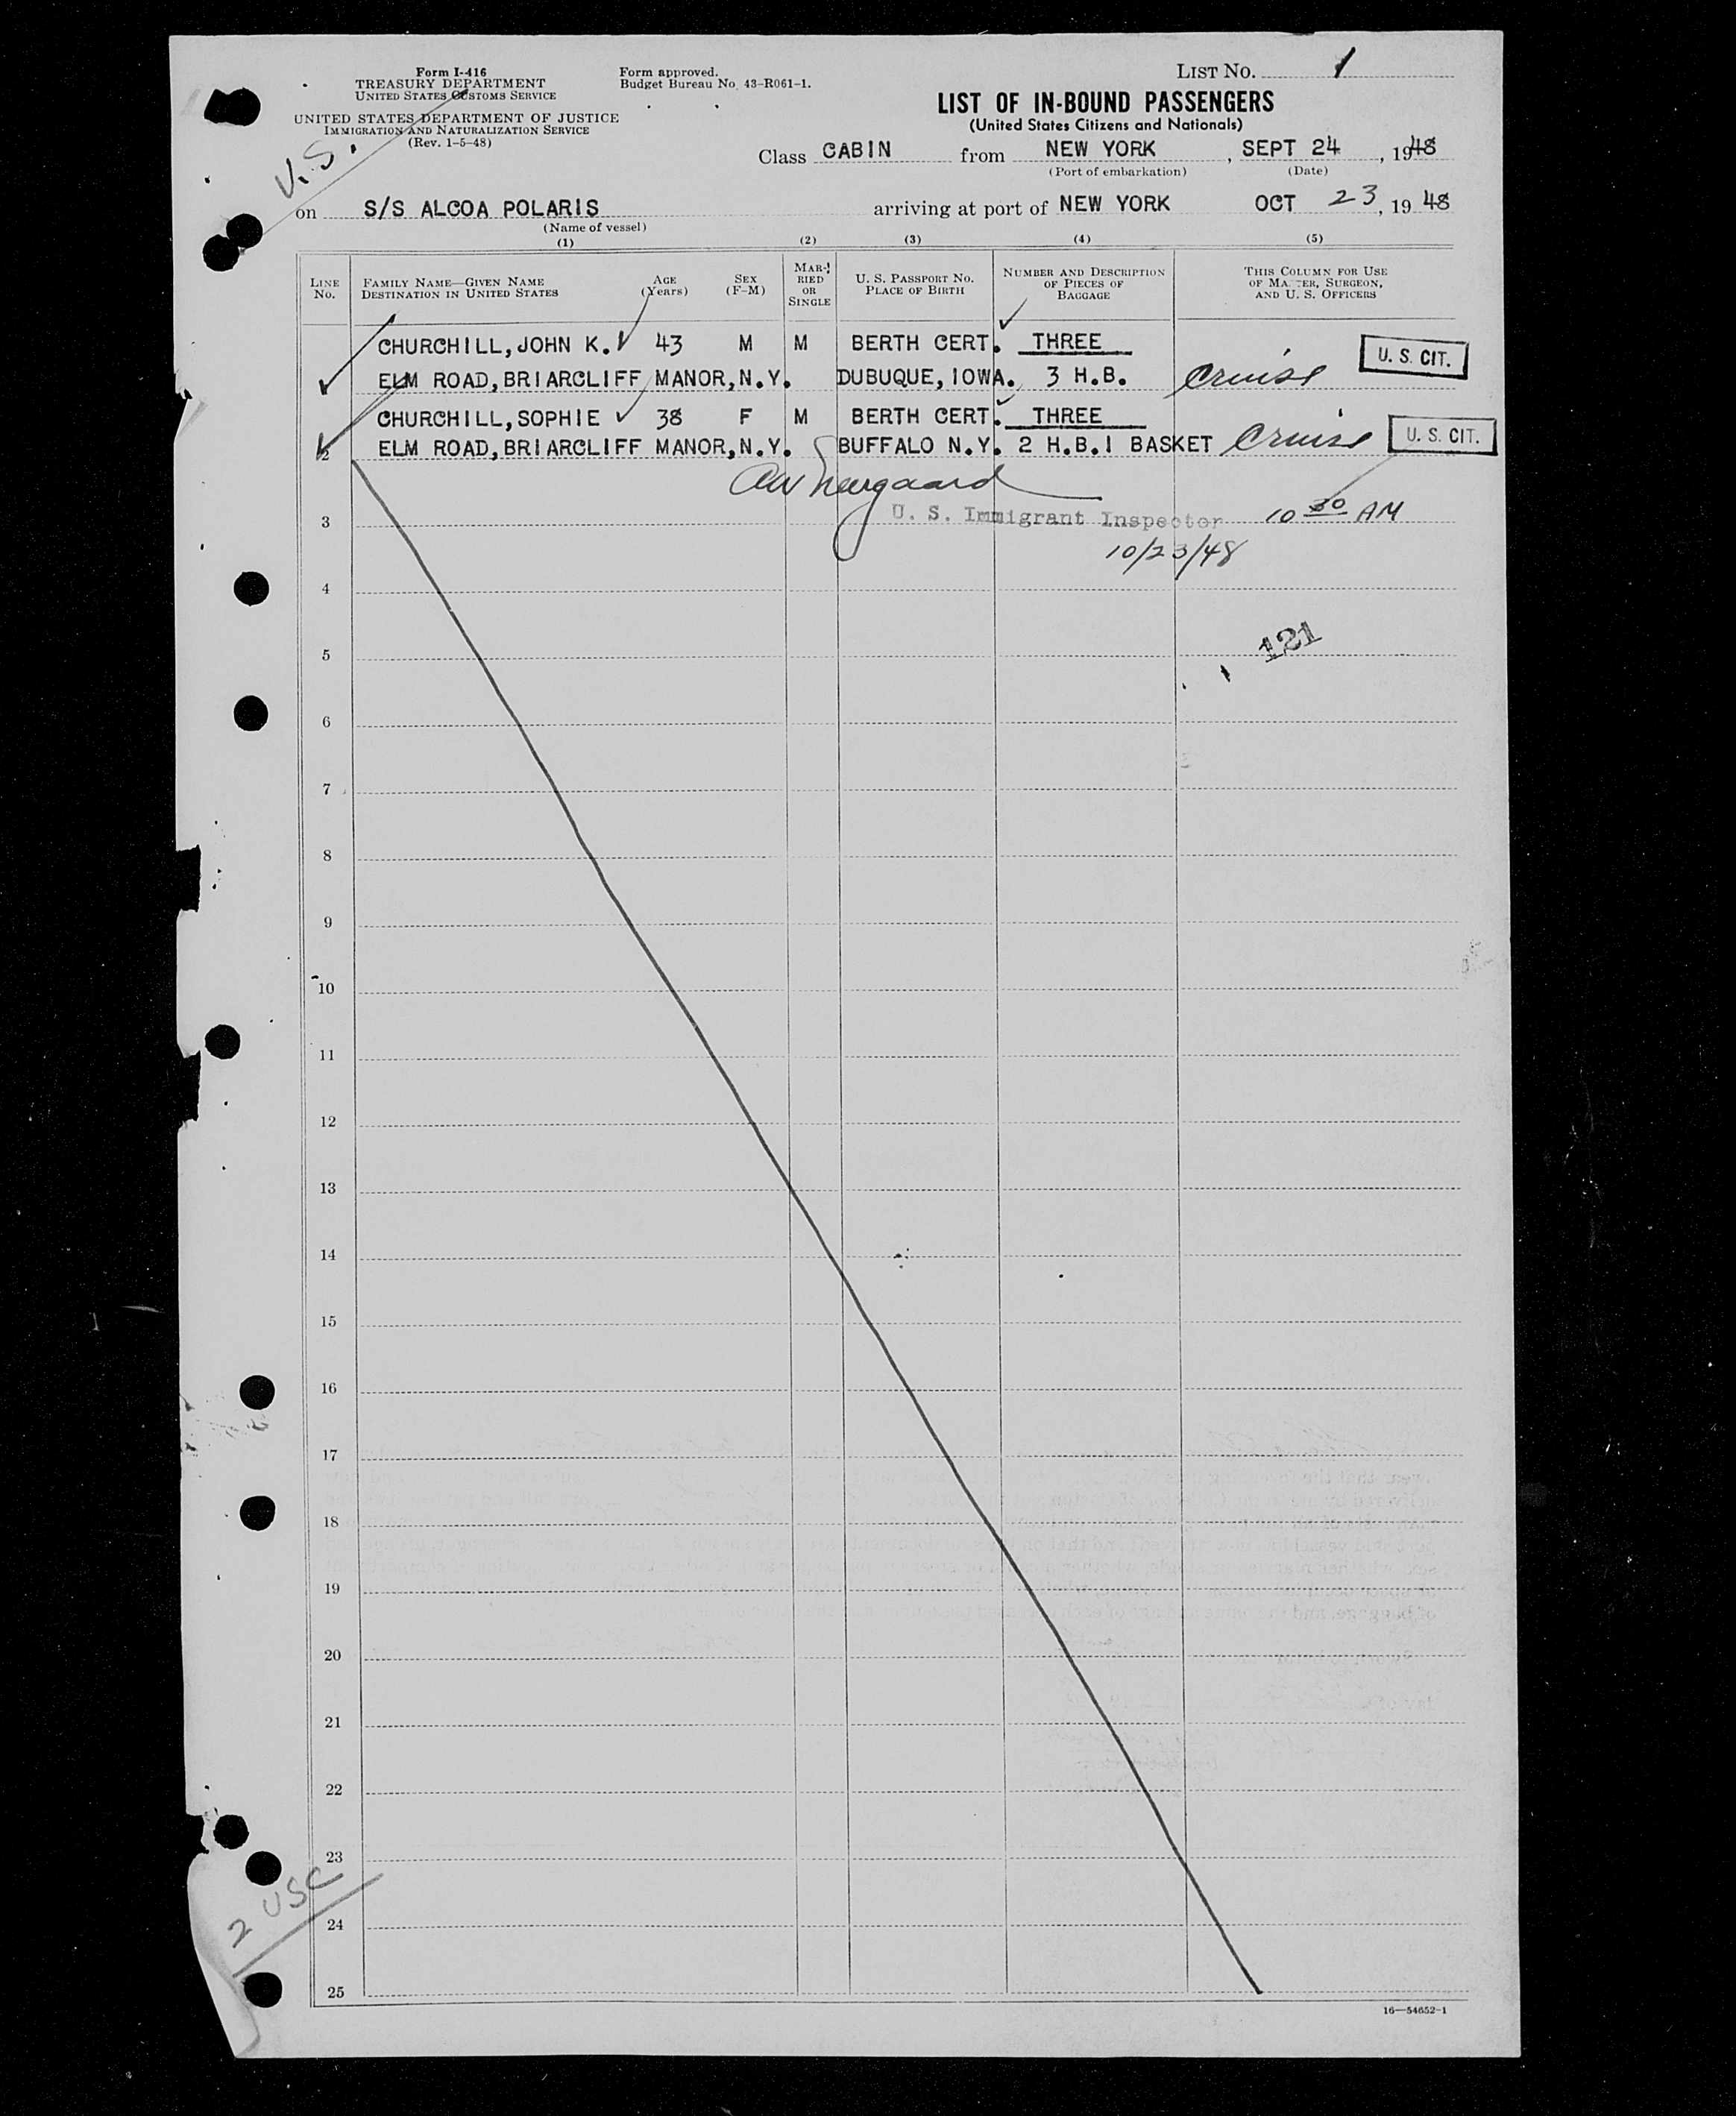 Form I-416
TREASURY DEPARTMENT
UNITED STATES CUSTOMS SERVICE
UNITED STATES DEPARTMENT OF JUSTICE
IMMIGRATION AND NATURALIZATION SERVICE
(Rev. 1-5-48)
U.S.
Form approved.
Budget Bureau No. 43-R061-1.
LIST NO. 1
LIST OF IN-BOUND PASSENGERS
(United States Citizens and Nationals)
Class CABIN from NEW YORK, SEPT 24, 1948
(Port of embarkation) (Date)
on S/S ALCOA POLARIS arriving at port of NEW YORK OCT 23, 19 48
(Name of vessel)
(1) (2) (3) (4) (5)
LINE NO.
FAMILY NAME—GIVEN NAME
DESTINATION IN UNITED STATES
AGE (Years)
SEX (F-M)
MARRIED OR SINGLE
U. S. PASSPORT NO.
PLACE OF BIRTH
NUMBER AND DESCRIPTION OF PIECES OF BAGGAGE
THIS COLUMN FOR USE OF MASTER, SURGEON, AND U. S. OFFICERS
CHURCHILL, JOHN K. 43 M M BERTH CERT. THREE U. S. CIT.
ELM ROAD, BRIARCLIFF MANOR, N.Y. DUBUQUE, IOWA. 3 H.B. Cruise
CHURCHILL, SOPHIE 38 F M BERTH CERT. THREE
2 ELM ROAD, BRIARCLIFF MANOR, N.Y. BUFFALO N.Y. 2 H.B. 1 BASKET Cruise U. S. CIT.
3 U. S. Immigrant Inspector 10 30 AM
10/23/48
4
121
5
6
7
8
9
10
11
12
13
14
15
16
17
18
19
20
21
22
23
2 USC
24
25
16—54652-1